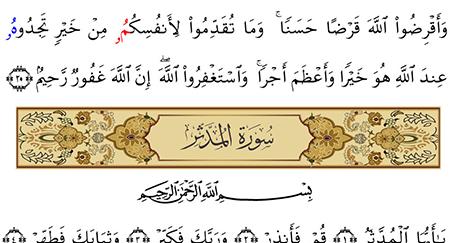 وَأَقْرِضُوا۟ اللَّهَ قَرْضًا حَسَنًا ۚ وَمَا تُقَدِّمُوا۟ لِأَنفُسِكُمُۥ مِنْ خَيْرٍ تَجِدُوهُۥ
عِندَ اللَّهِ هُوَ خَيْرًا وَأَعْظَمَ أَجْرًا ۚ وَاسْتَغْفِرُوا۟ اللَّهَ ۖ إِنَّ اللَّهَ غَفُورٌ رَحِيمٌ ﴿٢٠﴾
سُورَةُ المُدَّثِّرِ
بِسْمِ اللَّهِ الرَّحْمَٰنِ الرَّحِيمِ
يَا أَيُّهَا الْمُدَّثِّرُ ﴿١﴾ قُمْ فَأَنذِرْ ﴿٢﴾ وَرَبَّكَ فَكَبِّرْ ﴿٣﴾ وَثِيَابَكَ فَطَهِّرْ ﴿٤﴾